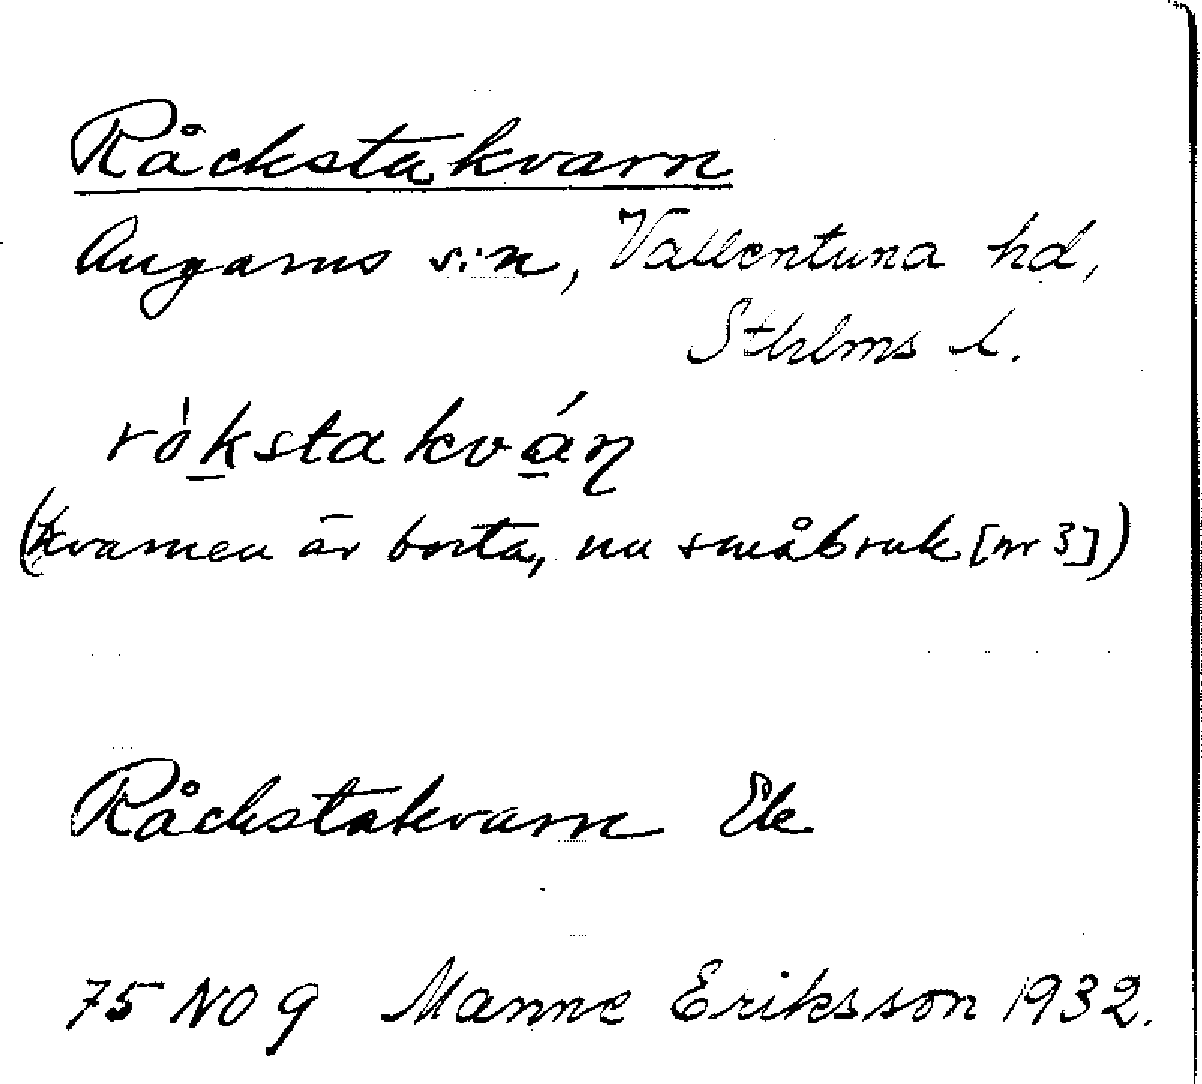 Råckstakvarn
Angarns s:n, Vallentuna hd,
Sthlms l.
rò̀kstakváṇ
(kvarnen är borta, nu småbruk [nr 3])
Råckstakvarn Ek
75 NO 9 Manne Eriksson 1932.